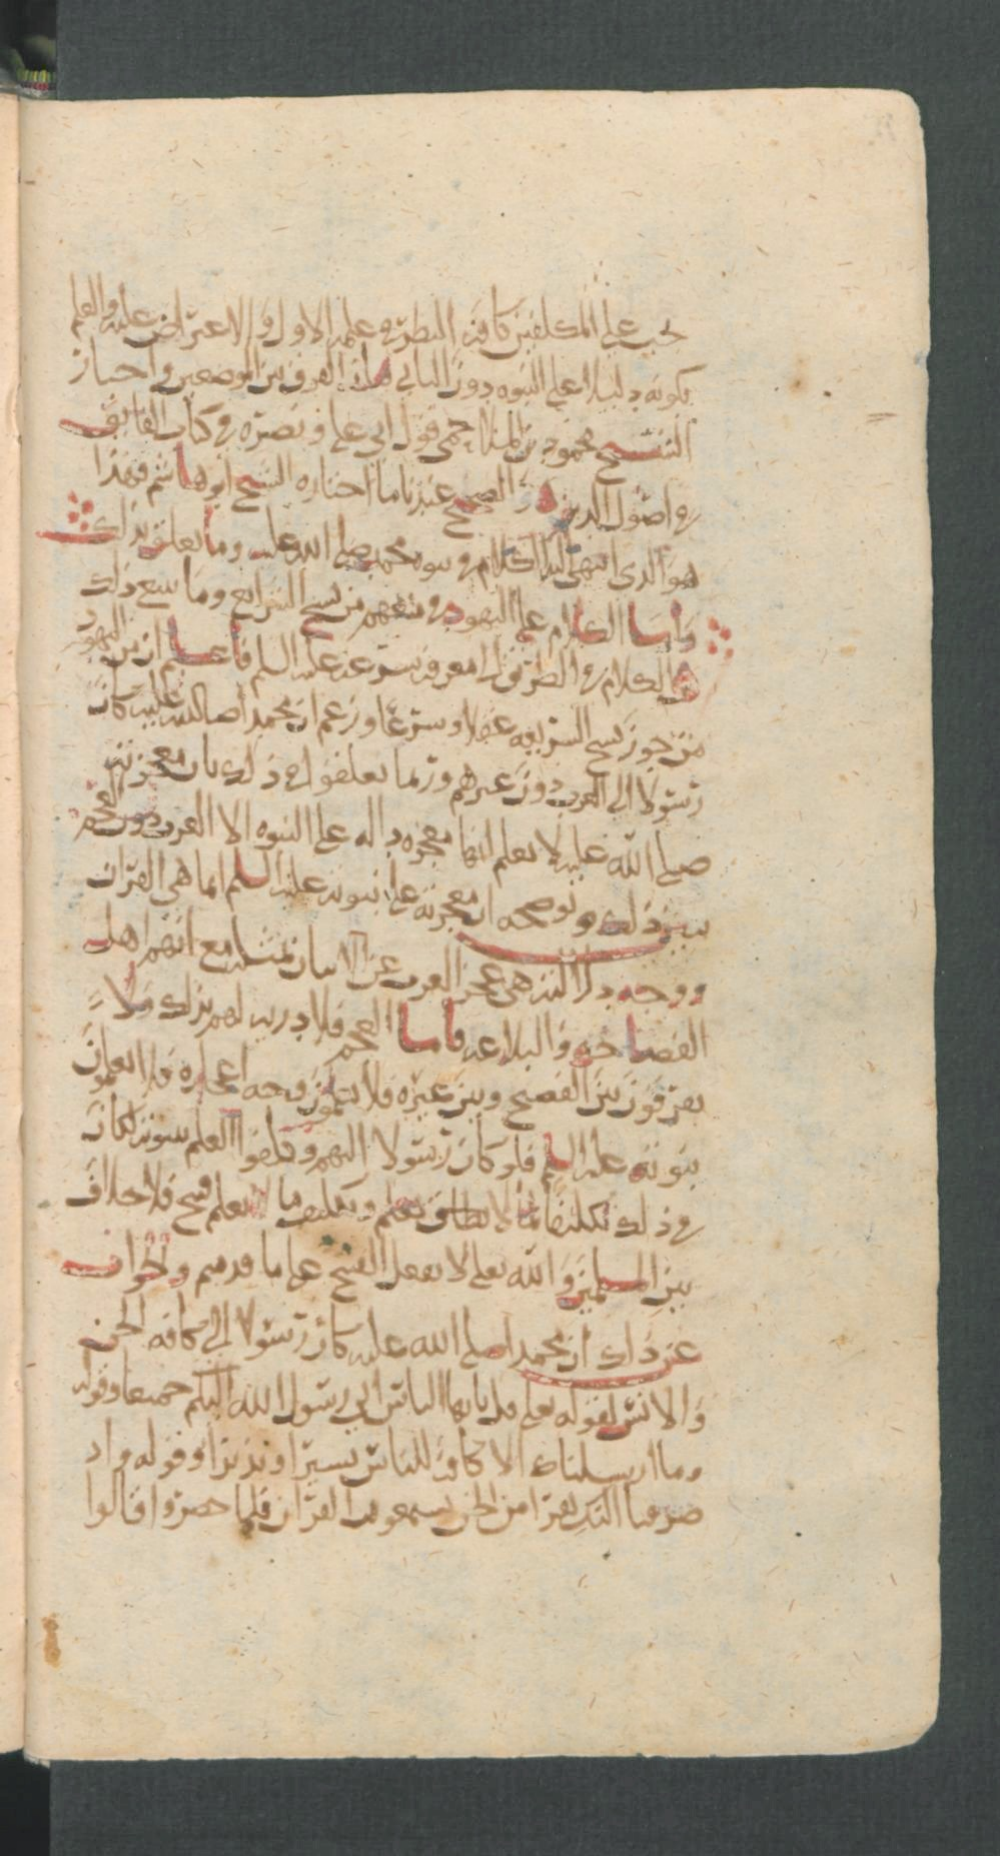 يجب على المكلفين كافة النظر في علمه الاول والاعتراض عليه والعلم
بكونه دليلا على النبوه دون الثاني هذا الفرق بين الموضعين واختار
الشيخ محمود بن الملاحمي قول ابي علي ونصره في كتاب الفايق
في اصول الدين والصحيح عندنا ما اختاره الشيخ ابو هاشم فهذا
هو الذي انتهى اليه الكلام في نبوه محمد صلى الله عليه وما يتعلق بذلك
واما الكلام على اليهود في منعهم من نسخ الشرايع وما يتبع ذلك
الكلام في الطريق الى معرفة شرعه عليه السلم فاعلم ان من اليهود
من جوز نسخ الشريعه عقلا وشرعا وزعم ان محمدا صلى الله عليه كان
رسولا الى العرب دون غيرهم وربما تعلقوا في ذلك بان معجزته
صلى الله عليه لا يعلم انها معجزه داله على النبوه الا العرب دون العجم
يبين ذلك ويوضحه ان معجزته على نبوته عليه السلم انما هي القران
ووجه دلالته هي عجز العرب عن الاتيان بمثله مع انهم اهل
الفصاحه والبلاغه فاما العجم فلا دربه لهم بذلك ولا
يفرقون بين الفصيح وبين غيره فلا يعلمون وجه اعجازه فلا يعلمون
نبوته عليه السلم فلو كان رسولا اليهم وكلفوا العلم بنبوته لكان
في ذلك تكليفا لما لا يطاق ويعلم وتكليف ما لا يعلم قبيح فلا خلاف
بين المسلمين والله تعلى لا يفعل القبيح على ما قدمتم والجواب
عن ذلك ان محمدا صلى الله عليه كان رسولا الى كافه الجن
والانس لقوله تعلى قل يايها الناس اني رسول الله اليكم جميعا وقوله
وما ارسلناك الا كافة للناس بشيرا ونذيرا وقوله واذ
صرفنا اليك نفرا من الجن يستمعون القران فلما حضروا قالوا